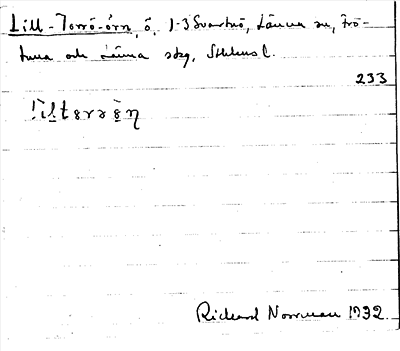 Lill-Torrö-örn, ö, 1-3 Svartnö, Länna sn, Frö-
tuna och Länna skg, Sthlms l.
233
Richard Norrman 1932.